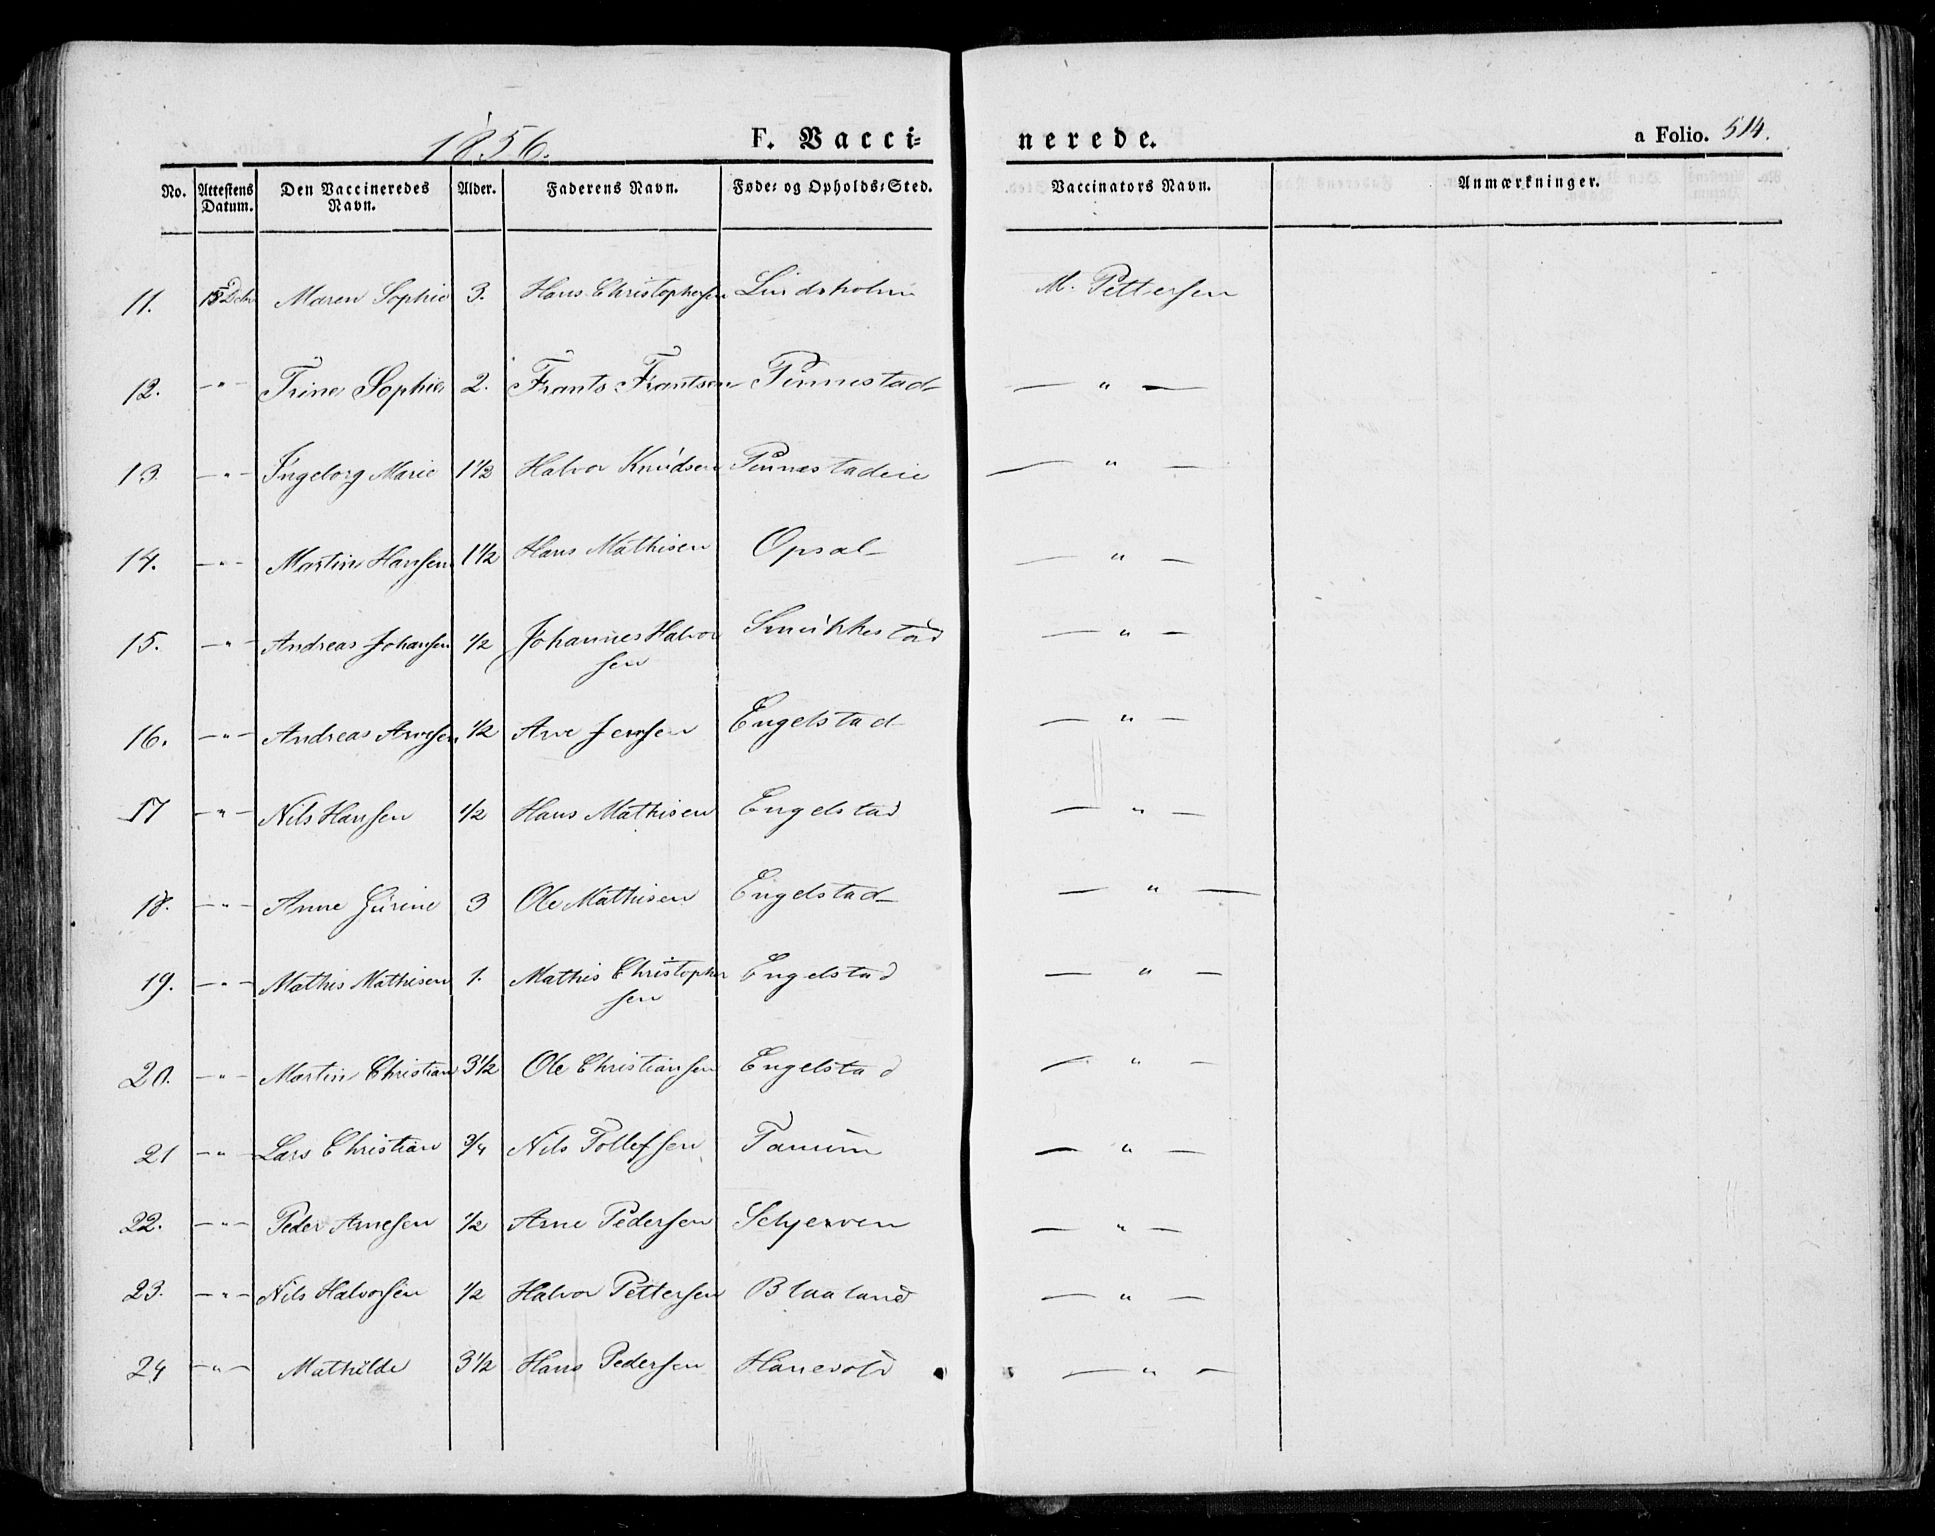 1856. F. Vacci= nerede. a Folio. 514.
No. Attestens Datum. Den Vaccineredes Navn. Alder. Faderens Navn. Føde= og Opholds=Sted. Vaccinators Navn. Anmærkninger.
11. 15 Dcbr Maren Sophie 3. Hans Christophersen Lindsholm M. Pettersen
12. -"- Trine Sophie 2. Frants Frantsen Pinnestad — " —
13. -"- Ingeborg Marie 1 1/2 Halvor Knudsen Pinnestadeie — " —
14. -"- Martin Hansen 1 1/2 Hans Mathisen Opsal — " —
15. -"- Andreas Johansen 1/2 Johannes Halvor Smukkestad — " —
sen
16. -"- Andreas Arvesen 1/2 Arve Jensen Engelstad — " —
17 -"- Nils Hansen 1/2 Hans Mathisen Engelstad — " —
18. -"- Anne Gurine 3 Ole Mathisen Engelstad — " —
19. -"- Mathis Mathisen 1. Mathis Christopher Engelstad — " —
sen
20. -"- Martin Christian 3 1/2 Ole Christiansen Engelstad — " —
21 -"- Lars Christian 3/4 Nils Tollefsen Tanum — " —
22. -"- Peder Arnesen 1/2 Arne Pedersen Schjerven — " —
23. -"- Nils Halvorsen 1/2 Halvor Pettersen Blaaland — " —
24 -"- Mathilde 3 1/2 Hans Pedersen Hanevold — " —